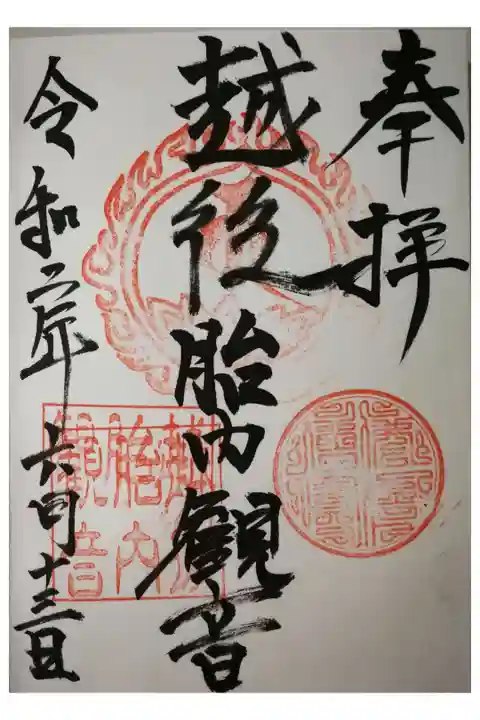 奉拝
越後胎内観音
令和二年六月十三日
越
胎内
観音